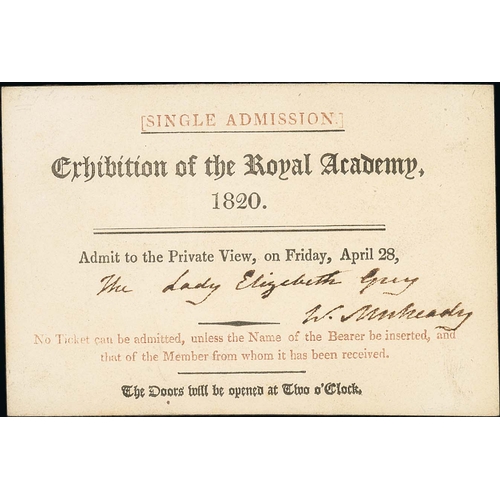 [SINGLE ADMISSION.]
Exhibition of the Royal Academy,
1820.
Admit to the Private View, on Friday, April 28,
The Lady Elizabeth Grey
W. Mulready
No Ticket can be admitted, unless the Name of the Bearer be inserted, and
that of the Member from whom it has been received.
The Doors will be opened at Two o'Clock.